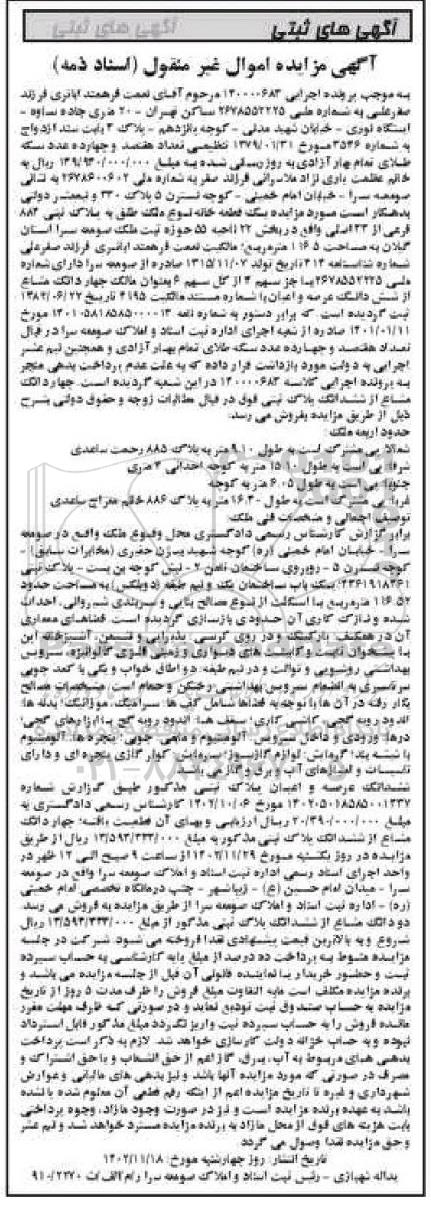 آگهی های ثبتی
آگهی مزایده اموال غیر منقول (اسناد ذمه)
به موجب پرونده اجرایی ۱۴۰۰۰۰۶۸۳ مرحوم آقای نعمت فرهمند اباتری فرزند
صفرعلی به شماره ملی ۲۶۷۸۵۵۲۲۲۵ ساکن تهران - ۲۰ متری جاده ساوه -
ایستگاه نوری - خیابان شهید مدنی - کوچه یازدهم - پلاک ۴ بابت سند ازدواج
به شماره ۳۵۴۶ مورخ ۱۳۷۹/۰۱/۳۱ تنظیمی تعداد هفتصد و چهارده عدد سکه
طلای تمام بهار آزادی به روز رسانی شده به مبلغ ۱۳۹/۹۳۰/۰۰۰/۰۰۰ ریال به
خانم عظمت یاری نژاد ملاسرائی فرزند صفر به شماره ملی ۲۶۷۸۶۰۰۶۰۲ به نشانی
صومعه سرا - خیابان امام خمینی - کوچه نسترن ۵ پلاک ۳۳۰ و نیم عشر دولتی
بدهکار است مورد مزایده یک قطعه خانه نوع ملک طلق به پلاک ثبتی ۸۸۴
فرعی از ۲۳ اصلی واقع در بخش ۲۲ ناحیه ۵۵ حوزه ثبت ملک صومعه سرا استان
گیلان به مساحت ۱۱۶.۵ متر مربع؛ مالکیت نعمت فرهمند اباتری فرزند صفر علی
شماره شناسنامه ۳۱۴ تاریخ تولد ۱۳۱۵/۱۱/۰۷ صادره از صومعه سرا دارای شماره
ملی ۲۶۷۸۵۵۲۲۲۵ با جز سهم ۴ از کل سهم ۶ بعنوان مالک چهار دانگ مشاع
از شش دانگ عرصه و اعیان با شماره مستند مالکیت ۴۱۹۵ تاریخ ۱۳۸۲/۰۶/۲۲
ثبت گردیده است. که برابر دستور به شماره نامه ۱۴۰۱۰۵۸۱۸۵۸۵۰۰۰۰۱۳ مورخ
۱۴۰۱/۰۱/۱۱ صادره از شعبه اجرای اداره ثبت اسناد و املاک صومعه سرا در قبال
تعداد هفتصد و چهارده عدد سکه طلای تمام بهار آزادی و همچنین نیم عشر
اجرایی به دولت مورد بازداشت قرار داده که به علت عدم پرداخت بدهی منجر
به پرونده اجرایی کلاسه ۱۴۰۰۰۰۶۸۳ در این شعبه گردیده است. چهار دانگ
مشاع از ششدانگ پلاک ثبتی فوق در قبال مطالبات زوجه و حقوق دولتی بشرح
ذیل از طریق مزایده بفروش می رسد.
حدود اربعه ملک:
شمالا: پی مشترک است به طول ۹.۱۰ متر به پلاک ۸۸۵ رحمت ساعدی
شرقا: پی است به طول ۱۵.۱۰ متر به کوچه احداثی ۴ متری
جنوبا: پی است به طول ۶.۰۵ متر به کوچه
غربا: پی مشترک است به طول ۱۶.۳۰ متر به پلاک ۸۸۶ خانم معراج ساعدی
توصیف اجمالی و مشخصات فنی ملک:
برابر گزارش کارشناس رسمی دادگستری محل وقوع ملک واقع در صومعه
سرا - خیابان امام خمینی (ره) کوچه شهید بیژن حقدری (مخابرات سابق) -
کوچه نسترن ۵ - روبروی ساختمان نگین ۲ - نبش کوچه بن بست - پلاک ثبتی
۴۳۶۱۹۱۸۳۶۱؛ یک باب ساختمان یک و نیم طبقه (دوبلکس) به مساحت حدود
۱۱۶.۵۲ متر مربع با اسکلت از نوع مصالح بنایی و سربندی شیروانی، احداث
شده و نازک کاری آن حدودی بازسازی گردیده است. فضاهای معماری
آن در همکف: پارکینگ و در روی کرسی: پذیرایی و نشیمن، آشپزخانه اپن
با پیشخوان ثابت و کابینت های دیواری و زمینی فلزی گالوانیزه، سرویس
بهداشتی روشویی و توالت و در نیم طبقه: دو اطاق خواب و یکی با کمد چوبی
سرتاسری به انضمام سرویس بهداشتی، رختکن و حمام است. مشخصات مصالح
بکار رفته در آن ها با توجه به فضاها شامل کف ها: سرامیک، موزائیک؛ بدنه ها:
اندود رویه گچی، کاشی کاری؛ سقف ها: اندود رویه گچ با ابزارهای گچی؛
درها: ورودی و داخل سرویس: آلومینیوم و مابقی: چوبی؛ پنجره ها: آلومینیوم
با شیشه بند؛ گرمایش: لوازم گازسوز؛ سرمایش: کولر گازی پنجره ای و دارای
تاسیسات و امتیازهای آب و برق و گاز می باشد.
ششدانگ عرصه و اعیان پلاک ثبتی مذکور طبق گزارش شماره
۱۴۰۲۰۵۰۱۸۵۸۵۰۰۱۳۳۷ مورخ ۱۴۰۲/۱۰/۰۶ کارشناس رسمی دادگستری به
مبلغ ۲۰/۳۹۰/۰۰۰/۰۰۰ ریال ارزیابی و بهای آن قطعیت یافته؛ چهار دانگ
مشاع از ششدانگ پلاک ثبتی مذکور به مبلغ ۱۳/۵۹۳/۳۳۳/۰۰۰ ریال از طریق
مزایده در روز یکشنبه مورخ ۱۴۰۲/۱۱/۲۹ از ساعت ۹ صبح الی ۱۲ ظهر در
واحد اجرای اسناد رسمی اداره ثبت اسناد و املاک صومعه سرا واقع در صومعه
سرا - میدان امام حسین (ع) - زیباشهر - جنب درمانگاه تخصصی امام خمینی
(ره) - اداره ثبت اسناد و املاک صومعه سرا از طریق مزایده به فروش می رسد.
دو دانگ مشاع از ششدانگ پلاک ثبتی مذکور از مبلغ ۱۳/۵۹۳/۳۳۳/۰۰۰ ریال
شروع و به بالاترین قیمت پیشنهادی نقدا فروخته می شود شرکت در جلسه
مزایده منوط به پرداخت ده درصد از مبلغ پایه کارشناسی به حساب سپرده
ثبت و حضور خریدار یا نماینده قانونی آن قبل از جلسه مزایده می باشد و
برنده مزایده مکلف است مابه التفاوت مبلغ فروش را ظرف مدت ۵ روز از تاریخ
مزایده به حساب صندوق ثبت تودیع نماید و در صورتی که ظرف مهلت مقرر
مانده فروش را به حساب سپرده ثبت واریز نگردد مبلغ مذکور قابل استرداد
نبوده و به حساب خزانه دولت کارسازی خواهد شد. لازم به ذکر است پرداخت
بدهی های مربوط به آب، برق، گاز اعم از حق انشعاب و یا حق اشتراک و
مصرف در صورتی که مورد مزایده آنها باشد و نیز بدهی های مالیاتی و عوارض
شهرداری و غیره تا تاریخ مزایده اعم از اینکه رقم قطعی آن معلوم شده یا نشده
باشد به عهده برنده مزایده است و نیز در صورت وجود مازاد، وجوه پرداختی
بابت هزینه های فوق از محل مازاد به برنده مزایده مسترد خواهد شد و نیم عشر
و حق مزایده نقدا وصول می گردد
تاریخ انتشار: روز چهارشنبه مورخ: ۱۴۰۲/۱۱/۱۸
یداله شهبازی - رئیس ثبت اسناد و املاک صومعه سرا رم الف ث ۹۱۰/۲۳۷۰